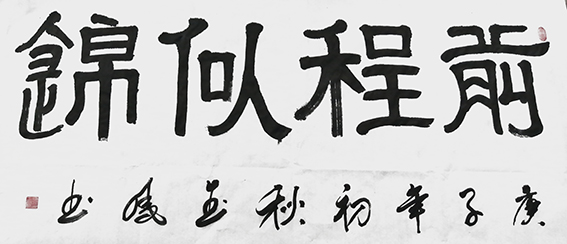 前程似錦
庚子年初秋书